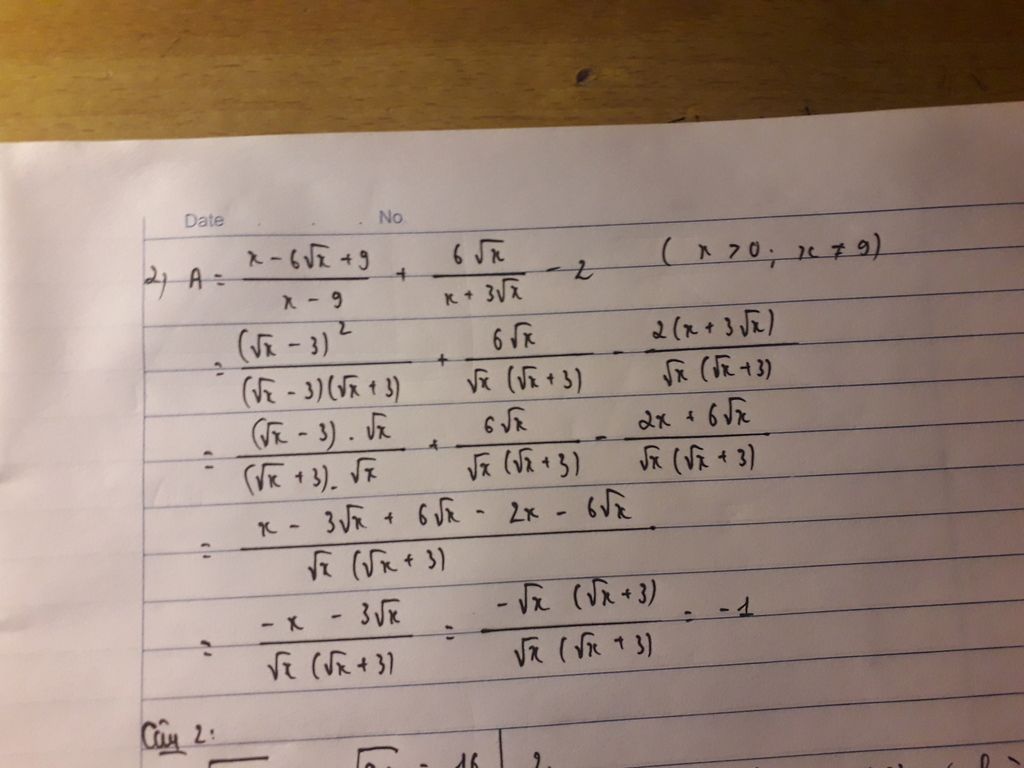 Date . . . No
2) A = \frac{x - 6\sqrt{x} + 9}{x - 9} + \frac{6\sqrt{x}}{x + 3\sqrt{x}} - 2 ( x > 0 ; x ≠ 9 )
= \frac{(\sqrt{x} - 3)^2}{(\sqrt{x} - 3)(\sqrt{x} + 3)} + \frac{6\sqrt{x}}{\sqrt{x} (\sqrt{x} + 3)} - \frac{2(x + 3\sqrt{x})}{\sqrt{x} (\sqrt{x} + 3)}
= \frac{(\sqrt{x} - 3) . \sqrt{x}}{(\sqrt{x} + 3) . \sqrt{x}} + \frac{6\sqrt{x}}{\sqrt{x} (\sqrt{x} + 3)} - \frac{2x + 6\sqrt{x}}{\sqrt{x} (\sqrt{x} + 3)}
= \frac{x - 3\sqrt{x} + 6\sqrt{x} - 2x - 6\sqrt{x}}{\sqrt{x} (\sqrt{x} + 3)}
= \frac{-x - 3\sqrt{x}}{\sqrt{x} (\sqrt{x} + 3)} = \frac{-\sqrt{x} (\sqrt{x} + 3)}{\sqrt{x} (\sqrt{x} + 3)} = -1
Câu 2: